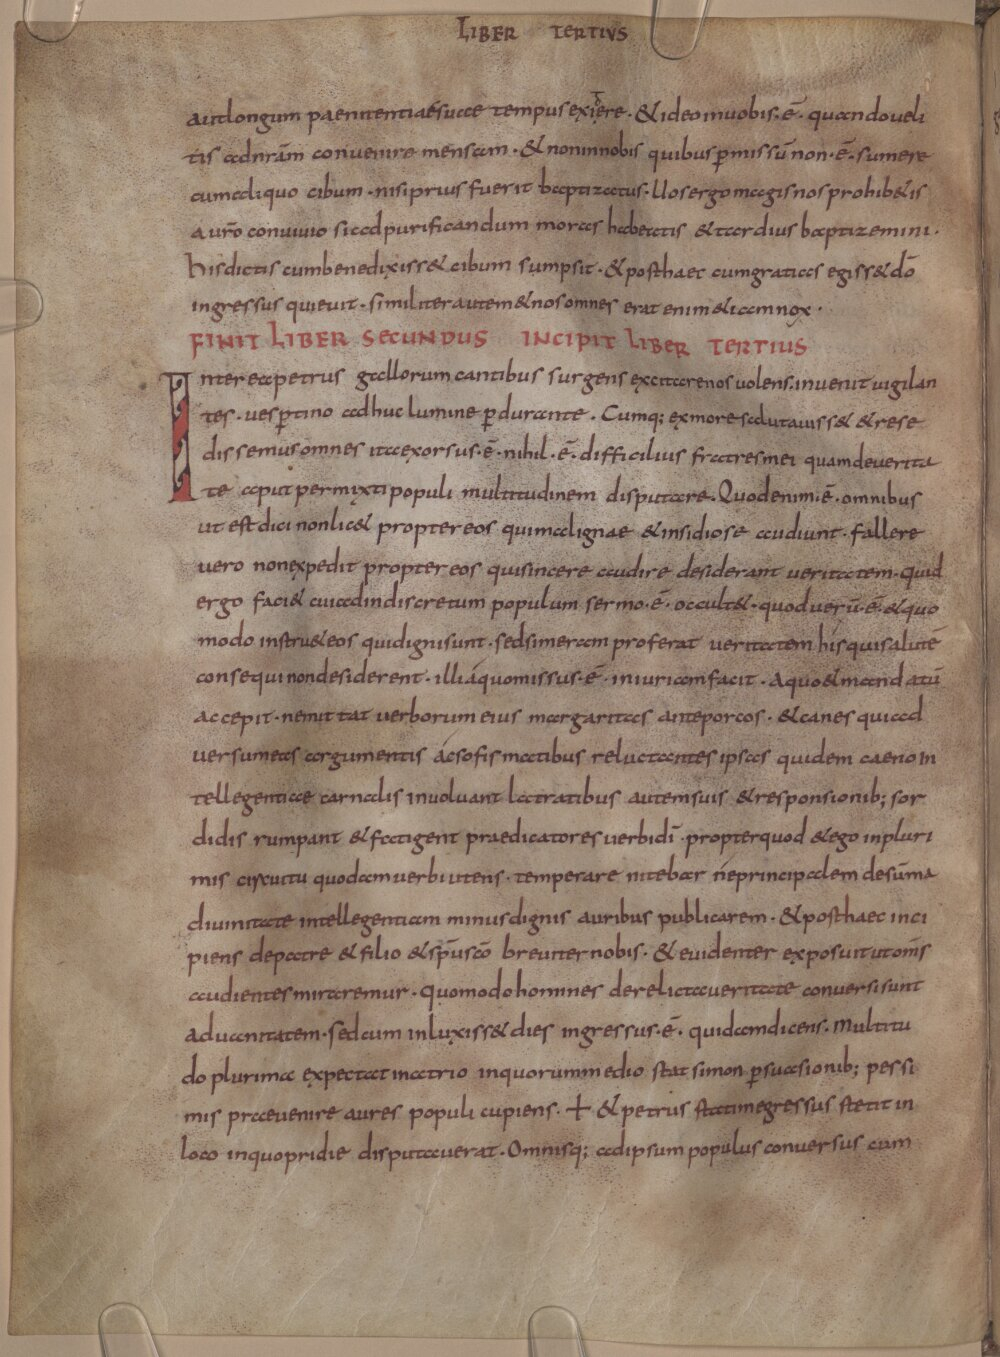 LIBER TERTIUS
aut longum paenitentiae suae tempus exigere · & ideo in uobis · ē · quando ueli
tis ad nr̄am conuenire mensam · & non in nobis quibus p̄missū non · ē · sumere
cum aliquo cibum · nisi prius fuerit baptizatus · Uos ergo magis nos prohib&is
a ur̄o conuiuio si ad purificandum moras habeatis & tardius baptizemini ·
his dictis cum benedixiss& cibum sumpsit · & post haec cum gratias egiss& dō
ingressus quieuit · similiter autem & nos omnes erat enim & iam nox ·
FINIT LIBER SECUNDUS INCIPIT LIBER TERTIUS
Interea petrus gallorum cantibus surgens excitare nos uolens · inuenit uigilan
tes · uesp̄tino adhuc lumine p̄durante . Cumq; ex more salutauiss& & rese
dissemus omnes ita exorsus · ē · nihil · ē · difficilius fratres mei quam de uerita
te aput permixti populi multitudinem disputare . Quod enim · ē · omnibus
ut est dici non lic& propter eos qui maligne & insidiose audiunt · fallere
uero non expedit propter eos qui sincere audire desiderant ueritatem · Quid
ergo faci& cui ad indiscretum populum sermo · ē · occult& · quod uerū · ē · & quo
modo instru& eos qui digni sunt · sed si meram proferat ueritatem his qui salutē
consequi non desiderent · illi á quo missus · ē · iniuriam facit · A quo & mandatū
accepit · ne mittat uerborum eius margaritas ante porcos · & canes qui ad
uersum eas argumentis ác sofismatibus reluctantes ipsas quidem caeno in
tellegentiae carnalis inuoluant latratibus autem suis & responsionib; sor
didis rumpant & fatigent praedicatores uerbi dī · propter quod & ego in pluri
mis circuitu quodam uerbi utens · temperare nitebar né principalem de sūma
diuinitate intellegentiam minus dignis auribus publicarem · & post haec inci
piens de patre & filio & sp̄u scō breuiter nobis · & euidenter exposuit ut om̄s
audientes miraremur · quomodo homines derelicta ueritate conuersi sunt
ad uanitatem · sed cum inluxiss& dies ingressus · ē · quidam dicens . Multitu
do plurima expectat in atrio in quorum medio stat simon p̄suasionib; pessi
mis praeuenire aures populi cupiens · & petrus statim egressus stetit in
loco in quo pridie disputauerat · Omnisq; ad ipsum populus conuersus cum